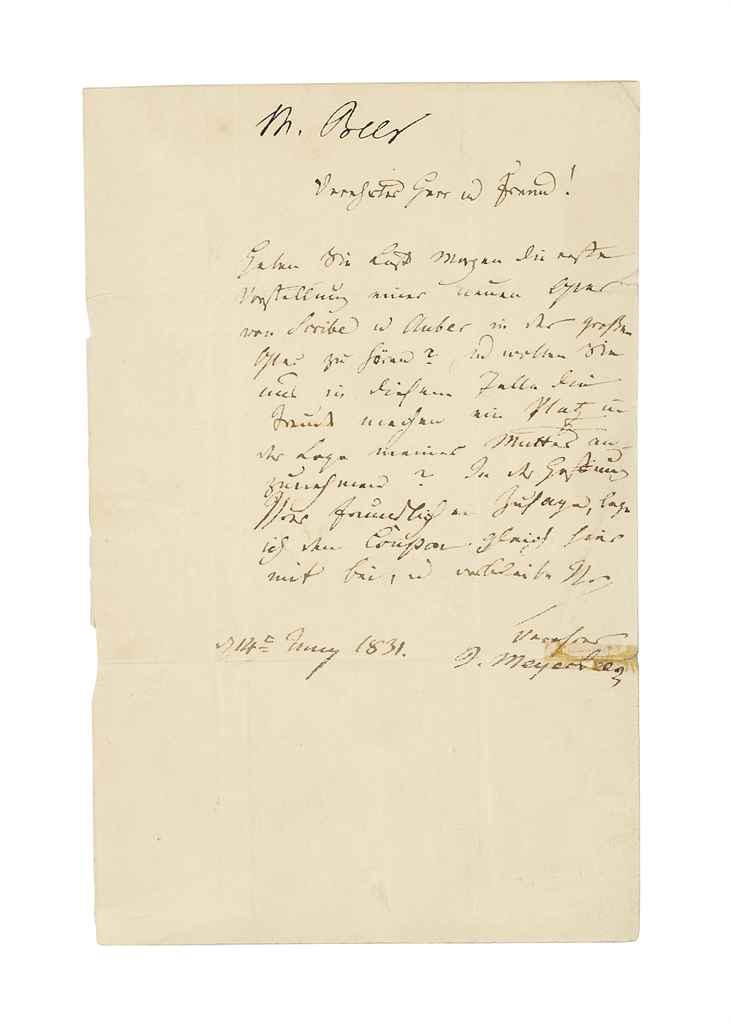 M. Beer
Verehrter Herr u Freund!
Haben Sie Lust Morgen die erste
Vorstellung einer neuen Oper
von Scribe u Auber in der großen
Oper zu hören? u wollen Sie
uns in diesem Falle die
Freude machen ein Platz in
der Loge meiner Mutter an-
zunehmen? In der Hoffnung
Ihrer freundlichen Zusage, lege
ich den Coupon gleich hier
mit bei, u verbleibe Ihr
Verehrer
d 14t Juny 1831.
Meyerbeer